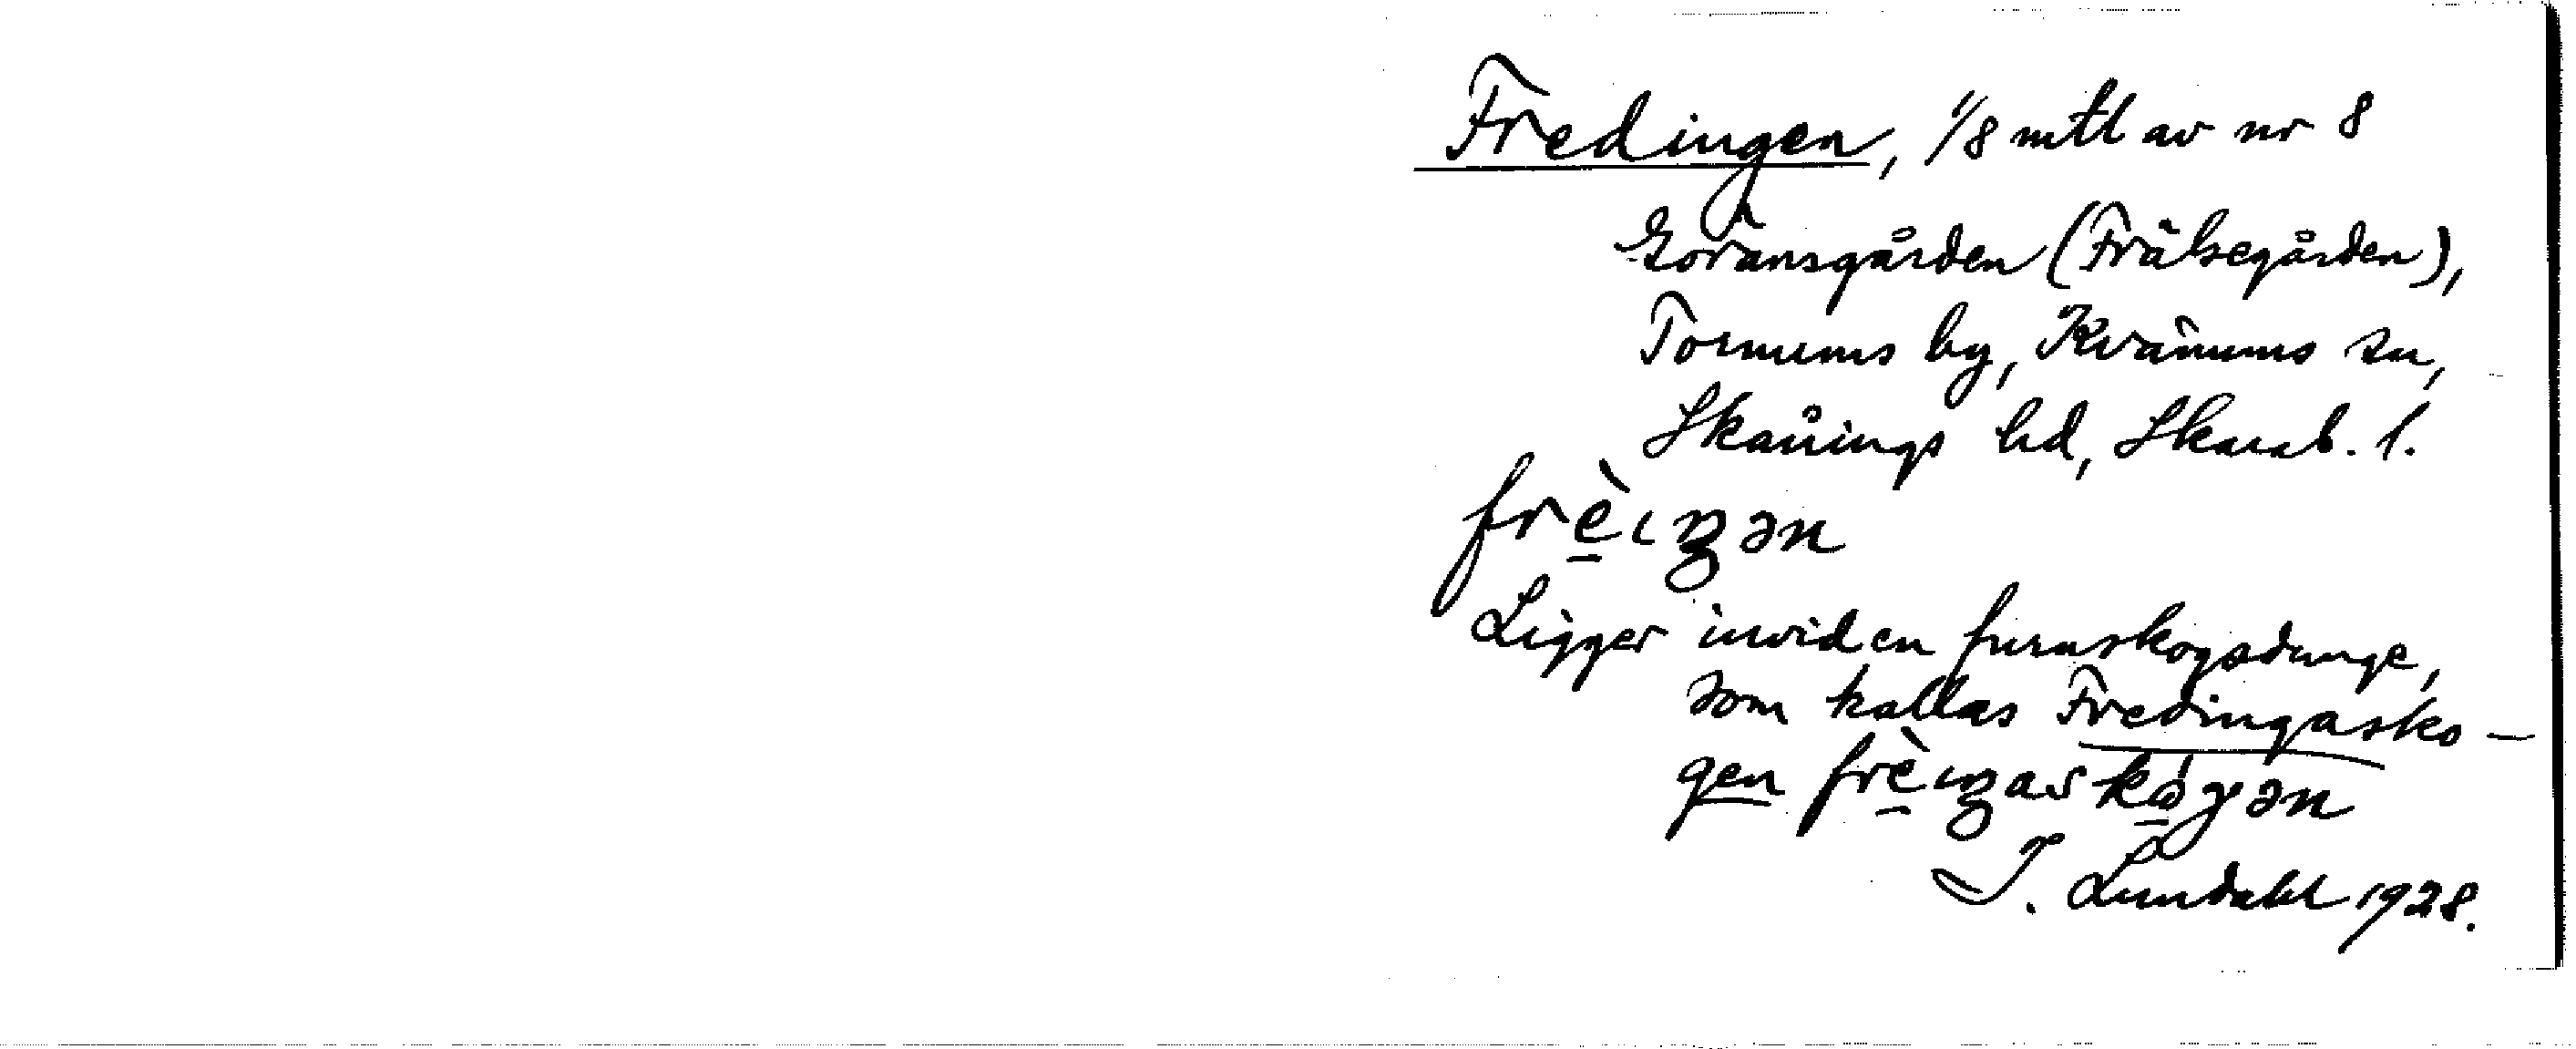 Fredingen, 1/8 mtl av nr 8
Göransgården (Frälsegården),
Tormums by, Kvänums sn,
Skånings hd, Skarab. l.
frè̠ɩŋən
Ligger invid en furuskogsdunge,
som kallas Fredingasko-
gen frè̠ɩŋaskǻ̠γən
I. Lundahl 1928.